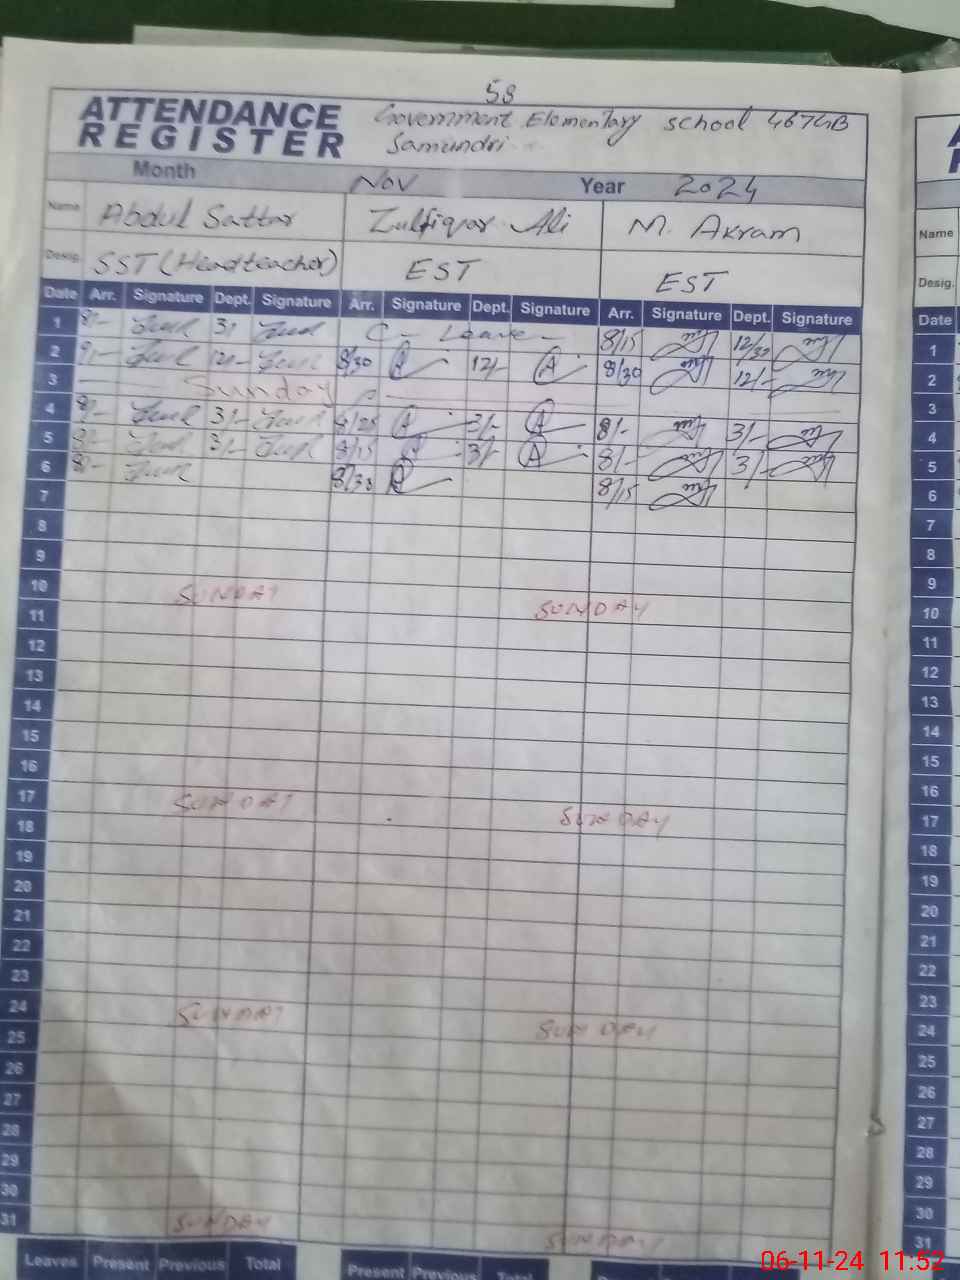 58
ATTENDANCE REGISTER
Government Elementary school 467GB
Samundri
Month Nov Year 2024
Name Abdul Sattar Zulfiqar Ali M. Akram
Desig. SST (Headteacher) EST EST
Date Arr. Signature Dept. Signature Arr. Signature Dept. Signature Arr. Signature Dept. Signature
1 8/- 3/- C - Leave 8/15 12/30
2 12/- 8/30 12/- 8/30 12/-
3 Sunday
4 8/- 3/- 8/25 3/- 8/- 3/-
5 8/- 3/- 8/15 3/- 8/- 3/-
6 8/- 8/30 8/15
7
8
9
10 SUNDAY SUNDAY
11
12
13
14
15
16
17 SUNDAY SUNDAY
18
19
20
21
22
23
24 SUNDAY SUNDAY
25
26
27
28
29
30
31 SUNDAY SUNDAY
Leaves Present Previous Total Present Previous Total
Name
Desig.
Date
1
2
3
4
5
6
7
8
9
10
11
12
13
14
15
16
17
18
19
20
21
22
23
24
25
26
27
28
29
30
31
06-11-24 11:52